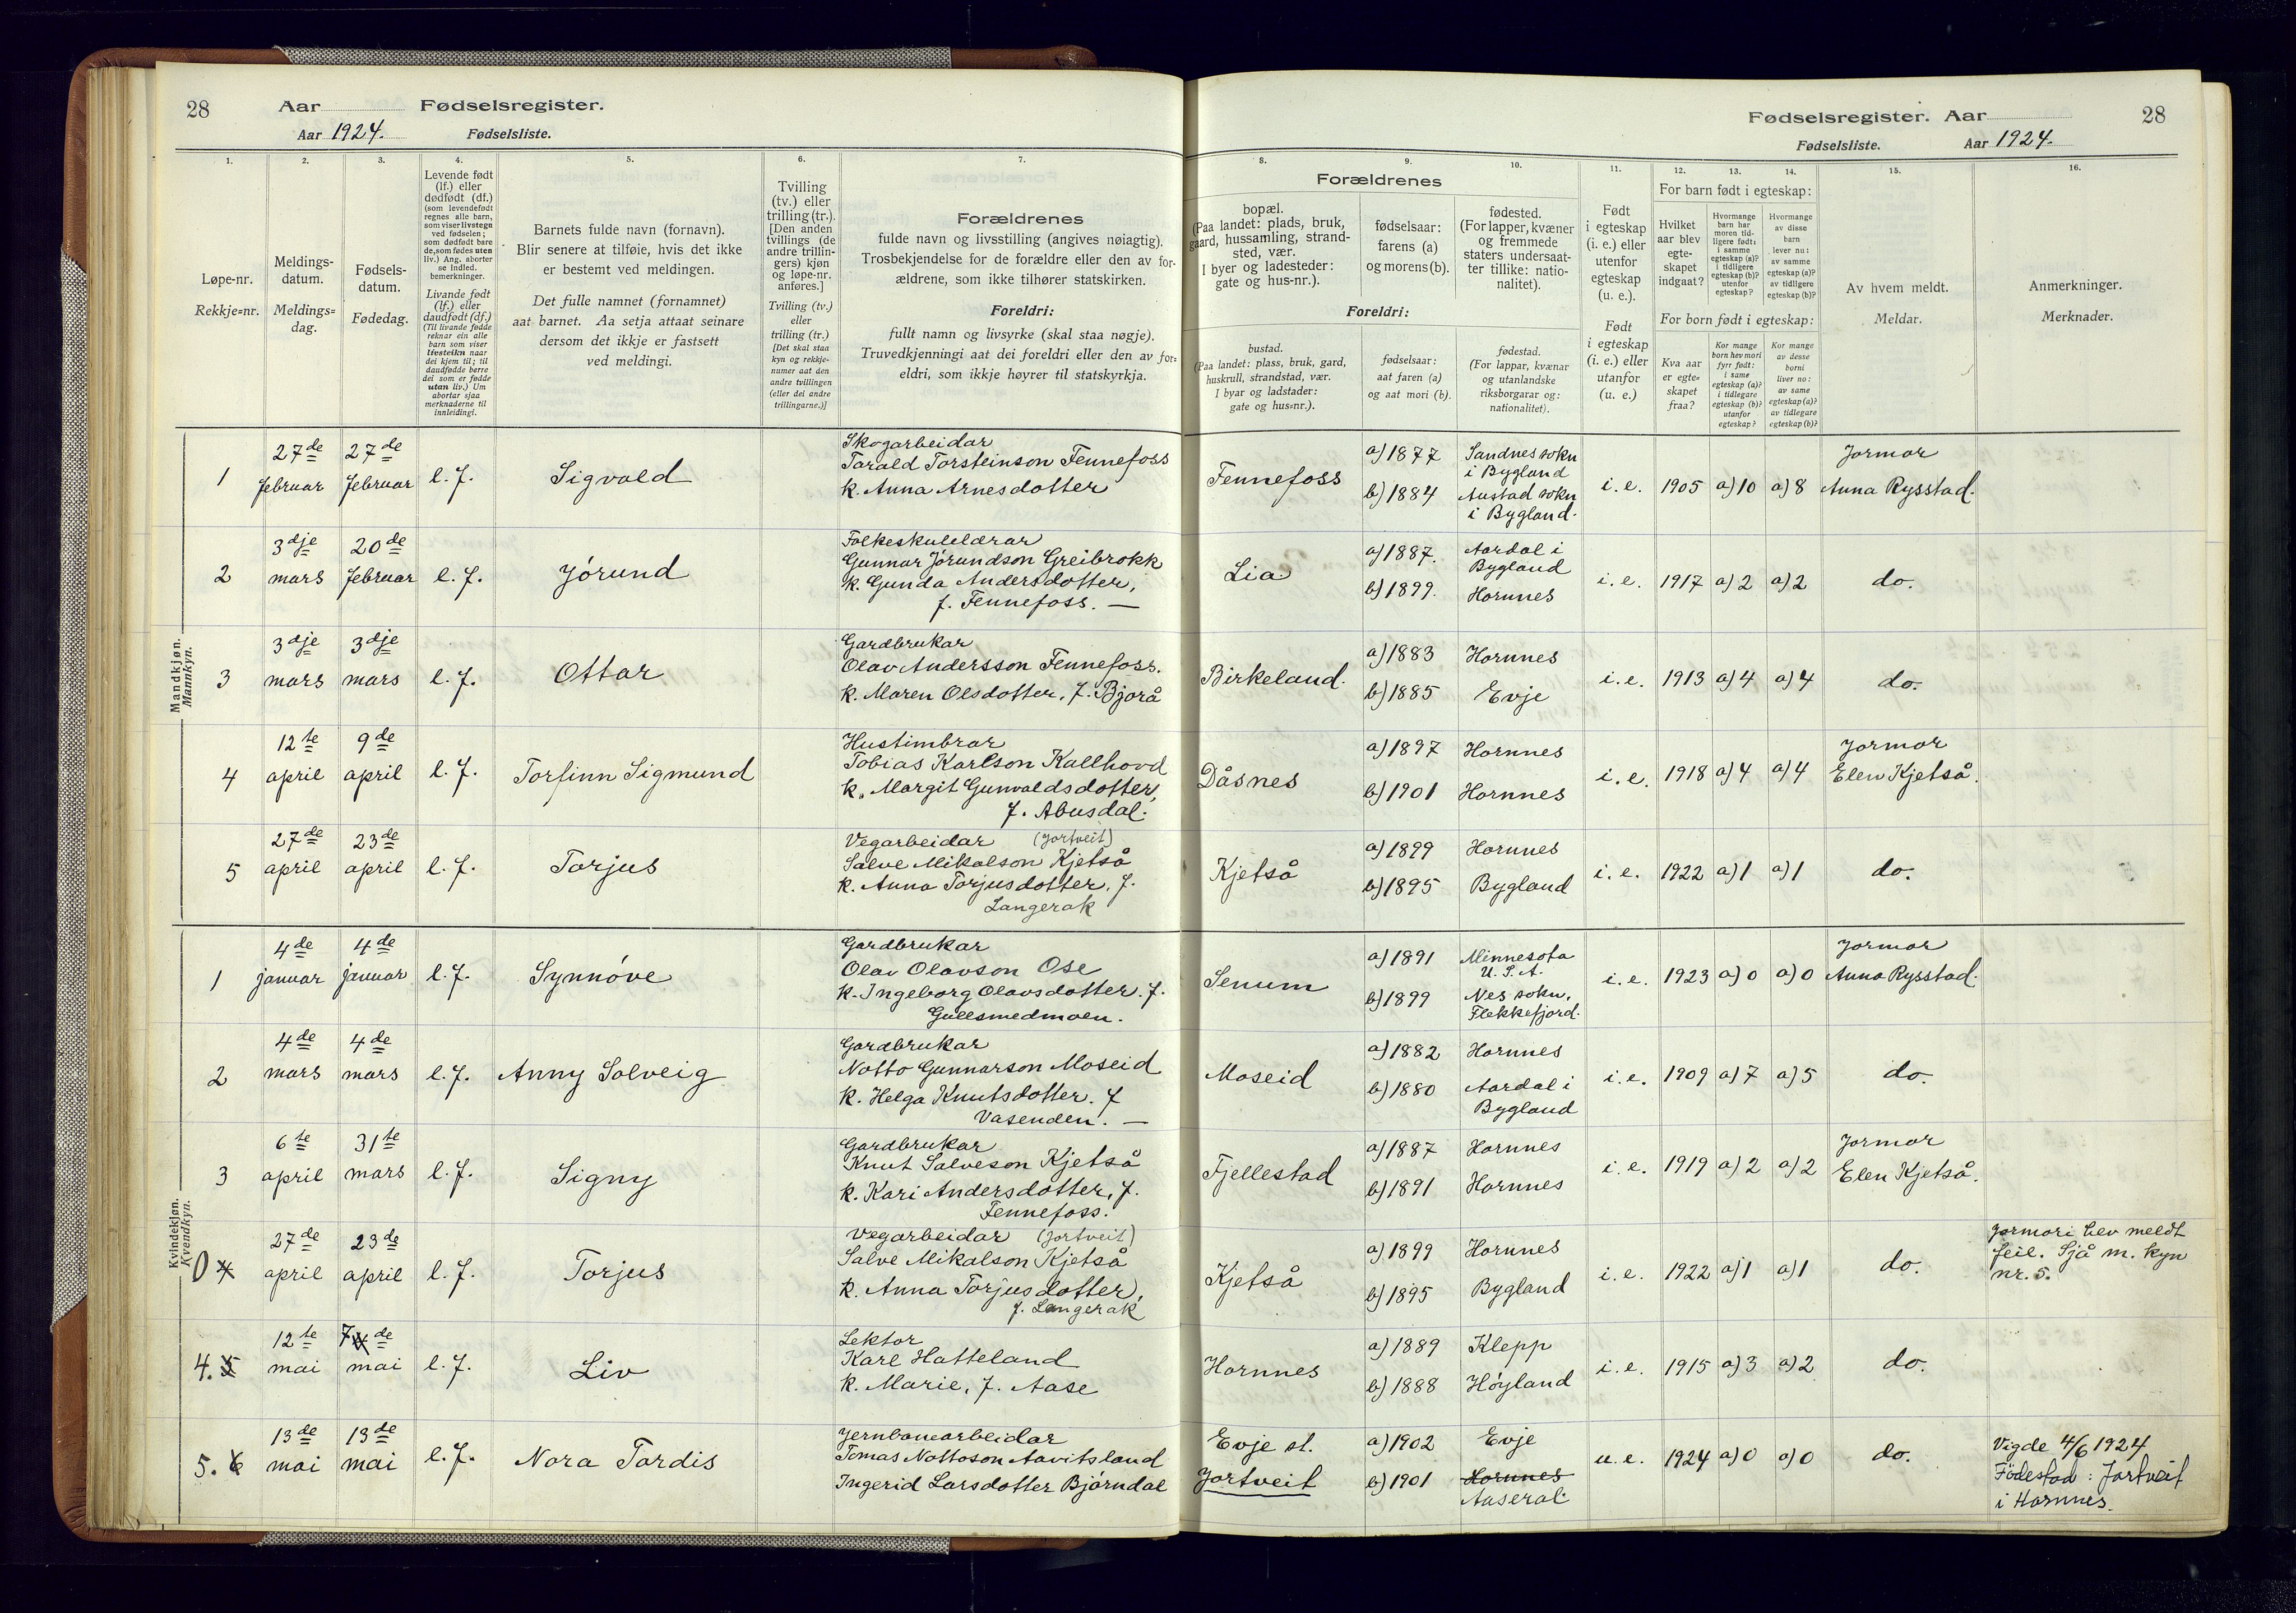 28 Aar Fødselsregister.
Aar 1924. Fødselsliste.
Fødselsregister. Aar 28
Fødselsliste. Aar 1924.
1. 2. 3. 4. 5. 6. 7. 8. 9. 10. 11. 12. 13. 14. 15. 16.
Løpe-nr.
Rekkje=nr.
Meldings-
datum.
Meldings=
dag.
Fødsels-
datum.
Fødedag.
Levende født
(lf.) eller
dødfødt (df.)
(som levendefødt
regnes alle barn,
som viser livstegn
ved fødselen;
som dødfødt bare
de, som fødes uten
liv.) Ang. aborter
se indled.
bemerkninger.
Livande født
(lf.) eller
daudfødt (df.)
(Til livande fødde
reknar ein alle
barn som viser
livsteikn naar
dei kjem til; til
daudfødde berre
dei som er fødde
utan liv.) Um
abortar sjaa
merknaderne til
innleidingi.
Barnets fulde navn (fornavn).
Blir senere at tilføie, hvis det ikke
er bestemt ved meldingen.
Det fulle namnet (fornamnet)
aat barnet. Aa setja attaat seinare
dersom det ikkje er fastsett
ved meldingi.
Tvilling
(tv.) eller
trilling (tr.).
[Den anden
tvillings (de
andre trillin-
gers) kjøn
og løpe-nr.
anføres.]
Tvilling (tv.)
eller
trilling (tr.)
[Det skal staa
kyn og rekkje-
numer aat den
andre tvillingen
(eller dei andre
trillingarne.)]
Forældrenes
fulde navn og livsstilling (angives nøiagtig).
Trosbekjendelse for de forældre eller den av for-
ældrene, som ikke tilhører statskirken.
Foreldri:
fullt namn og livsyrke (skal staa nøgje).
Truvedkjenningi aat dei foreldri eller den av for=
eldri, som ikkje høyrer til statskyrkja.
Forældrenes
bopæl.
(Paa landet: plads, bruk,
gaard, hussamling, strand-
sted, vær.
I byer og ladesteder:
gate og hus-nr.).
fødselsaar:
farens (a)
og morens (b).
fødested.
(For lapper, kvæner
og fremmede
staters undersaat-
ter tillike: natio-
nalitet).
Foreldri:
bustad.
(Paa landet: plass, bruk, gard,
huskrull, strandstad, vær.
I byar og ladstader:
gate og hus=nr.).
fødselsaar:
aat faren (a)
og aat mori (b).
fødestad.
(For lappar, kvænar
og utanlandske
riksborgarar og:
nationalitet).
Født
i egteskap
(i. e.) eller
utenfor
egteskap
(u. e.).
Født
i egteskap
(i. e.) eller
utanfor
(u. e.)
For barn født i egteskap:
Hvilket
aar blev
egte-
skapet
indgaat?
Hvormange
barn har
moren tid-
ligere født:
i samme
egteskap (a)?
i tidligere
egteskap (b)?
utenfor
egteskap?
Hvormange
av disse
barn
lever nu:
av samme
egteskap (a)?
av tidligere
egteskap (b)?
For born født i egteskap:
Kva aar
er egte=
skapet
fraa?
Kor mange
born hev mori
fyrr født:
i same
egteskap (a)?
i tidlegare
egteskap (b)?
utanfor
egteskap?
Kor mange
av desse
borni
liver no:
av same
egteskap (a)?
av tidlegare
egteskap (b)?
Av hvem meldt.
Meldar.
Anmerkninger.
Merknader.
Mandkjøn.
Mannkyn.
1 27de februar 27de februar l.f. Sigvald
Skogarbeidar
Tarald Torsteinson Fennefoss
k. Anna Arnesdotter
Fennefoss a) 1877 Sandnes sokn i Bygland
b) 1884 Austad sokn i Bygland.
i. e. 1905 a) 10 a) 8 Jormor Anna Rysstad.
2 3dje mars 20de februar l.f. Jórund
Folkeskulelærar
Gunnar Jórundson Greibrokk
k. Gunda Andersdotter,
f. Fennefoss. —
Lia a) 1887. Aardal i Bygland
b) 1899. Hornnes
i. e. 1917 a) 2 a) 2 do.
3 3dje mars 3dje mars l.f. Ottar
Gardbrukar
Olav Andersson Fennefoss.
k. Maren Olsdotter, f. Bjorå
Birkeland. a) 1883 Hornnes
b) 1885 Evje
i. e. 1913 a) 4 a) 4 do.
4 12te april 9de april l.f. Torfinn Sigmund
Hustimbrar
Tobias Karlson Kallhovd
k. Margit Gunvaldsdotter,
f. Abusdal.
Dåsnes a) 1897 Hornnes
b) 1901 Hornnes
i. e. 1918 a) 4 a) 4 Jormor Elen Kjetså.
5 27de april 23de april l.f. Torjus
Vegarbeidar (Jortveit)
Salve Mikalson Kjetså
k. Anna Torjusdotter, f.
Langerak
Kjetså a) 1899 Hornnes
b) 1895 Bygland
i. e. 1922 a) 1 a) 1 do.
Kvindekjøn.
Kvendkyn.
1 4de januar 4de januar l.f. Synnóve
Gardbrukar
Olav Olavson Ose
k. Ingeborg Olavsdotter. f.
Gullsmedmoen.
Senum a) 1891 Minnesota U. S. A.
b) 1899 Nes sokn, Flekkefjord.
i. e. 1923 a) 0 a) 0 Jormor Anna Rysstad.
2 4de mars 4de mars l.f. Anny Solveig
Gardbrukar
Notto Gunnarson Moseid
k. Helga Knutsdotter. f
Vasenden. —
Moseid a) 1882 Hornnes
b) 1880 Aardal i Bygland
i. e. 1909 a) 7 a) 5 do.
3 6te april 31te mars l.f. Signy
Gardbrukar
Knut Salveson Kjetså
k. Kari Andersdotter, f.
Fennefoss.
Fjellestad a) 1887 Hornnes
b) 1891 Hornnes
i. e. 1919 a) 2 a) 2 Jormor Elen Kjetså.
0 4 27de april 23de april l.f. Torjus
Vegarbeidar (Jortveit)
Salve Mikalson Kjetså
k. Anna Torjusdotter,
f. Langerak
Kjetså a) 1899 Hornnes
b) 1895 Bygland
i. e. 1922 a) 1 a) 1 do.
Jormori hev meldt
feil. Sjå m. kyn
nr. 5.
4. 5 12te mai 7de mai l.f. Liv
Lektor
Karl Hatteland
k. Marie, f. Aase
Hornnes a) 1889 Klepp
b) 1888 Hóyland
i. e. 1915 a) 3 a) 2 do.
5. 6 13de mai 13de mai l.f. Nora Tordis
Jernbanearbeidar
Tomas Nottoson Aavitsland
Ingerid Larsdotter Bjórndal
Evje st. a) 1902 Evje
Jortveit b) 1901 Hornnes
Aaseral.
u. e. 1924 a) 0 a) 0 do.
Vigde 4/6 1924
Födestad: Jortveit
i Hornnes.